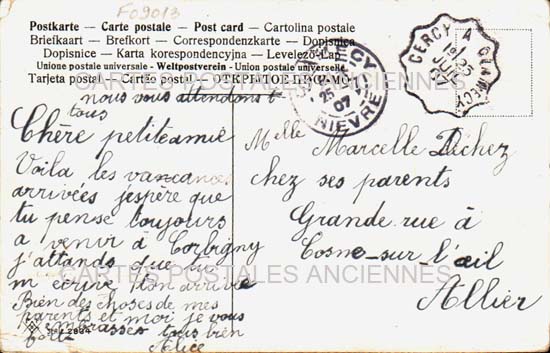 F09013
Postkarte - Carte postale - Post card - Cartolina postale
Briefkaart - Brefkort - Correspondenzkarte - Dopisnica
Dopisnice - Karta korespondencyjna - Levelező-Lap
Unione postale universale - Weltpostverein - Union postale universelle
Tarjeta postal - Cartão postal - ОТКРЫТОЕ ПИСЬМО
CARTES POSTALES ANCIENNES
25
07
NIEVRE
CERCY A CLAMECY
1E
25
JUIL
07
nous vous attendons
tous
Chère petite amie
Voila les vancances
arrivées j'espère que
tu pense toujours
a venir a Corbigny
j'attands que tu
m'écrive ton arrivée
Bien des choses de mes
parents et moi je vous
embrasses tous bien
fort
Alice
Melle Marcelle Dechez
chez ses parents
Grande rue à
Cosne-sur-l'œil
Allier
CARTES POSTALES ANCIENNES
2894